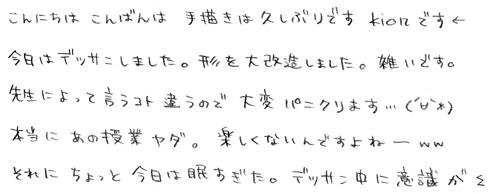 こんにちは こんばんは 手描きは久しぶりです kionです←
今日はデッサンしました。形を大改造しました。雑いです。
先生によって言うコト違うので 大変パニクリます…(´∀`*)
本当に あの授業ヤダ。楽しくないんですよねーww
それに ちょっと 今日は眠すぎた。デッサン中に意識が